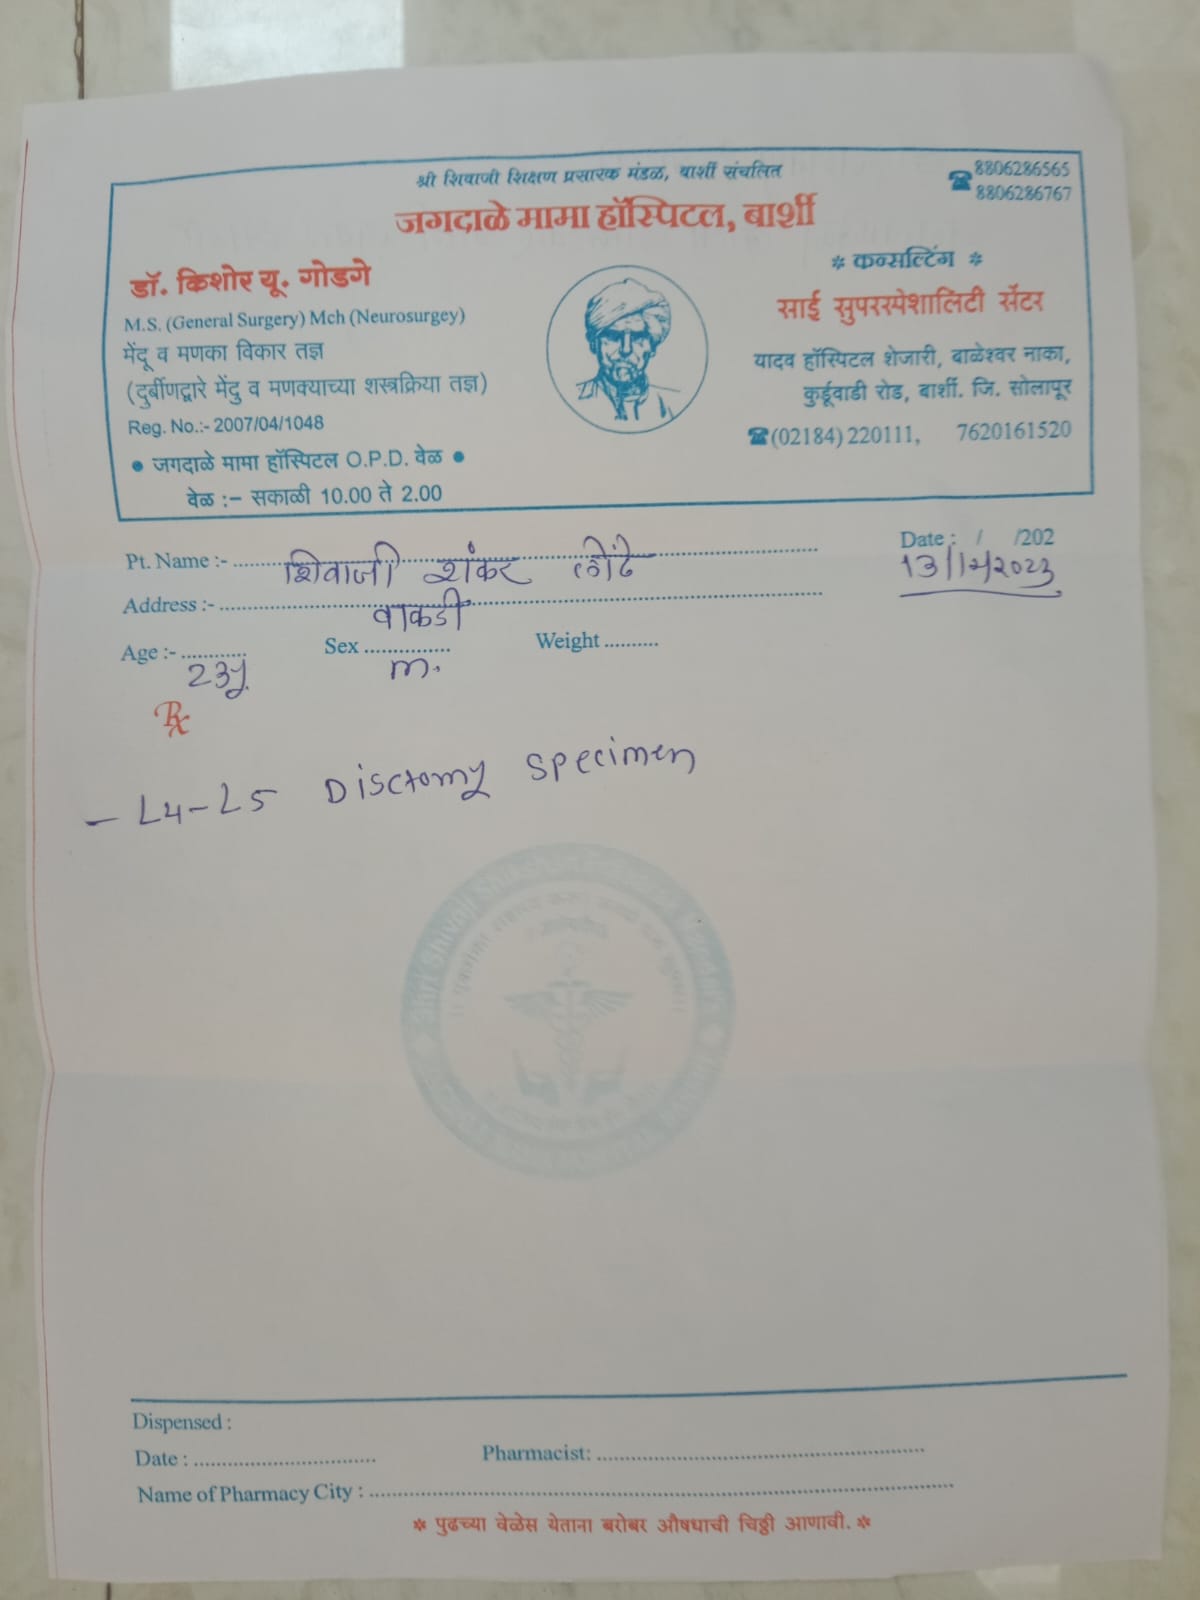 श्री शिवाजी शिक्षण प्रसारक मंडळ, बार्शी संचलित
8806286565
8806286767
जगदाळे मामा हॉस्पिटल, बार्शी
डॉ. किशोर यू. गोडगे
M.S. (General Surgery) Mch (Neurosurgey)
मेंदू व मणका विकार तज्ञ
(दुर्बीणद्वारे मेंदु व मणक्याच्या शस्त्रक्रिया तज्ञ)
Reg. No.:- 2007/04/1048
• जगदाळे मामा हॉस्पिटल O.P.D. वेळ •
वेळ :- सकाळी 10.00 ते 2.00
* कन्सल्टिंग *
साई सुपरस्पेशालिटी सेंटर
यादव हॉस्पिटल शेजारी, बाळेश्वर नाका,
कुर्डूवाडी रोड, बार्शी. जि. सोलापूर
(02184) 220111, 7620161520
Pt. Name :- शिवाजी शंकर लोंढे
Date : / /202
13/12/2023
Address :- वाकडी
Age :- 23y Sex m. Weight
Rx
- L4-L5 Disctomy Specimen
Shri Shivaji Shikshan Prasarak Mandal's
Dispensed :
Date : Pharmacist:
Name of Pharmacy City :
* पुढच्या वेळेस येताना बरोबर औषधाची चिठ्ठी आणावी. *